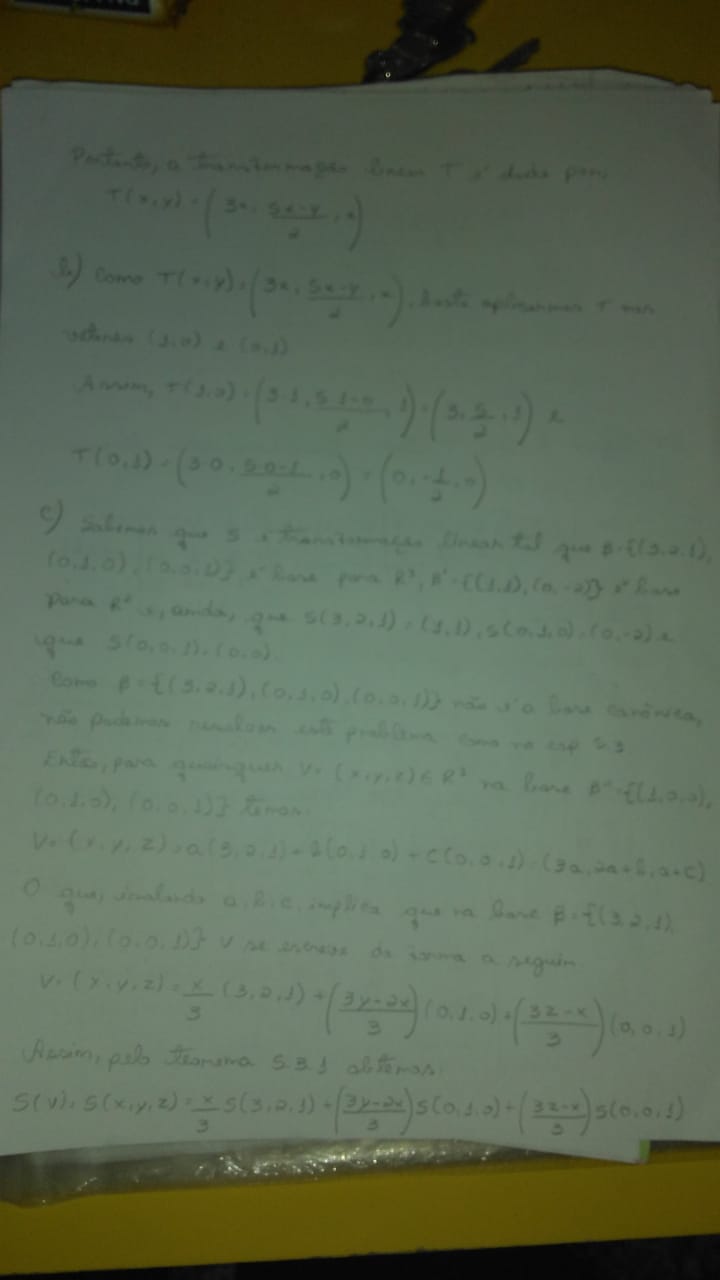 Portanto, a transformação linear T é dada por:
T(x,y) = (3x, 5x-y/2, x)
b) Como T(x,y) = (3x, 5x-y/2, x), basta aplicarmos T nos
vetores (1,0) e (0,1)
Assim, T(1,0) = (3·1, 5·1-0/2, 1) = (3, 5/2, 1) e
T(0,1) = (3·0, 5·0-1/2, 0) = (0, -1/2, 0)
c) Sabemos que S é transformação linear tal que β={(3,2,1),
(0,1,0),(0,0,1)} é base para R³, β'={(1,1),(0,-2)} é base
para R² e, ainda, que S(3,2,1)=(1,1), S(0,1,0)=(0,-2) e
que S(0,0,1)=(0,0).
Como β={(3,2,1),(0,1,0),(0,0,1)} não é a base canônica,
não podemos resolver este problema como no 5.3
Então, para quaisquer V=(x,y,z)∈R³ na base β''={(1,0,0),
(0,1,0),(0,0,1)} temos:
V=(x,y,z)=a(3,2,1)+b(0,1,0)+c(0,0,1)=(3a,2a+b,a+c)
O que, isolando a,b,c, implica que na base β={(3,2,1),
(0,1,0),(0,0,1)} V se escreve da forma a seguir:
V=(x,y,z)=x/3(3,2,1)+(3y-2x/3)(0,1,0)+(3z-x/3)(0,0,1)
Assim, pelo teorema 5.3.1 obtemos:
S(v)=S(x,y,z)=x/3 S(3,2,1)+(3y-2x/3)S(0,1,0)+(3z-x/3)S(0,0,1)